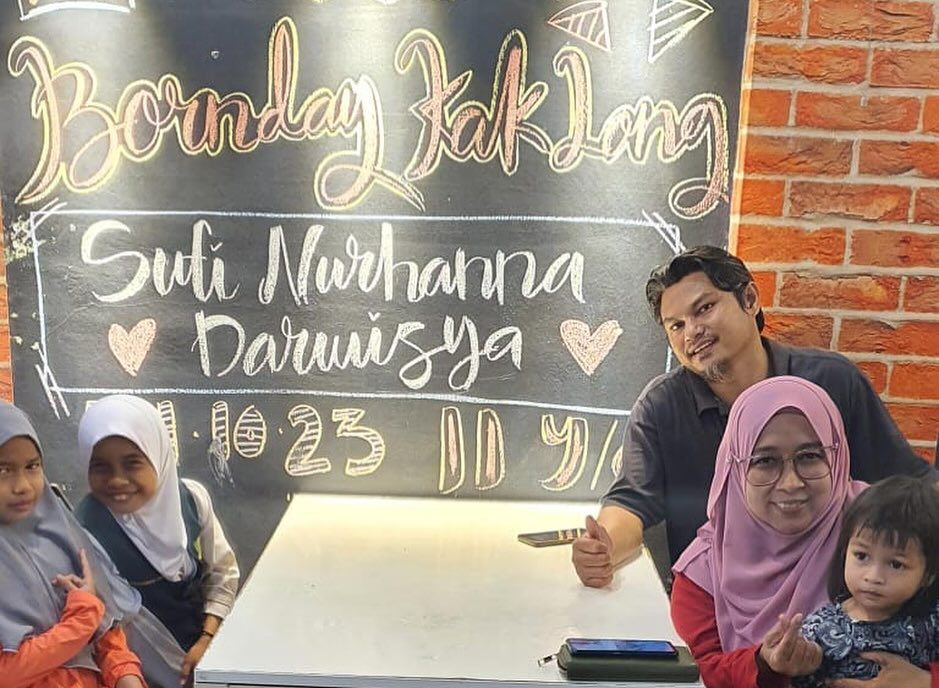 Bornday Kak Long
Suti Nurhanna
Darwisya
10.23 11 y/